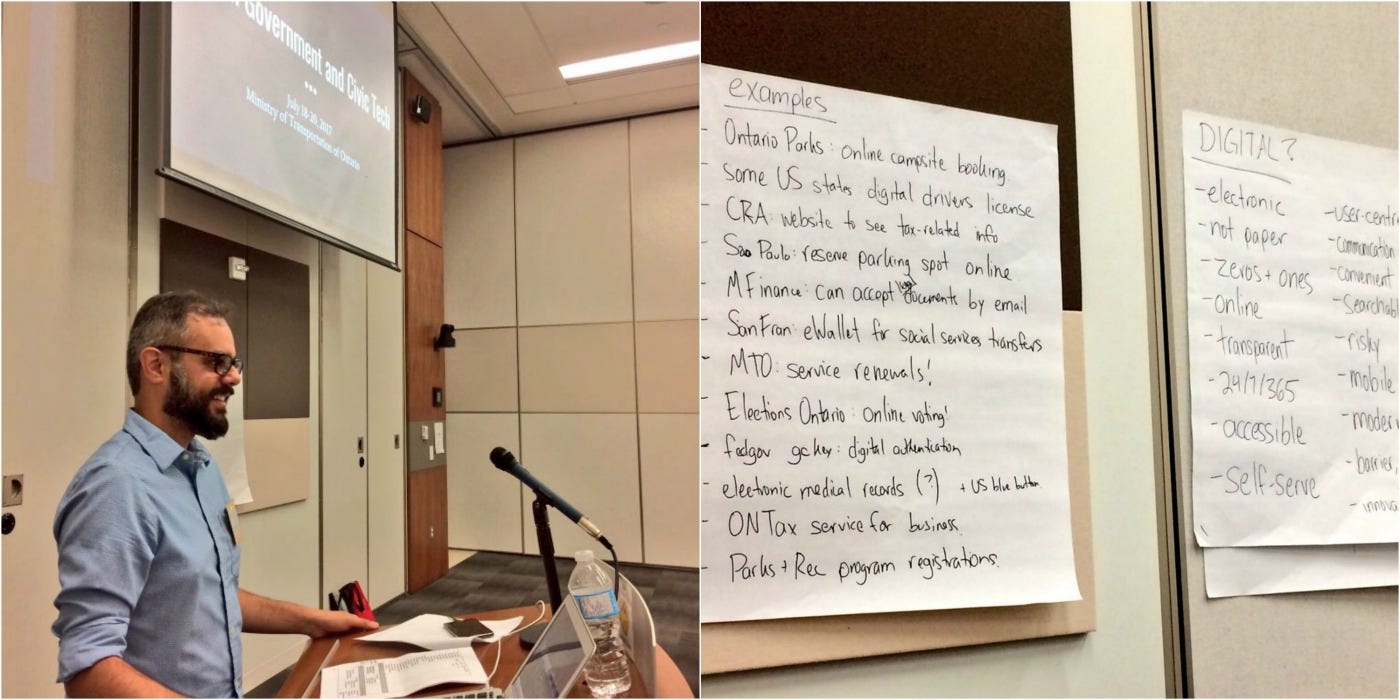 Government and Civic Tech
...
July 18-20, 2017
Ministry of Transportation of Ontario
examples
- Ontario Parks: online campsite booking.
- some US states digital drivers license
- CRA: website to see tax-related info
- Sao Paulo: reserve parking spot online
- MFinance: can accept documents by email
- SanFran: eWallet for social services transfers
- MTO: service renewals!
- Elections Ontario: online voting!
- fedgov gckey: digital authentication
- electronic medical records (?) + US blue button
- ONTax service for business.
- Parks + Rec program registrations.
DIGITAL?
- electronic
- not paper
- zeros + ones
- online
- transparent
- 24/7/365
- accessible
- self-serve
- user-centri
- communication
- convenient
- searchabl
- risky
- mobile
- moder
- barrier,
- innova